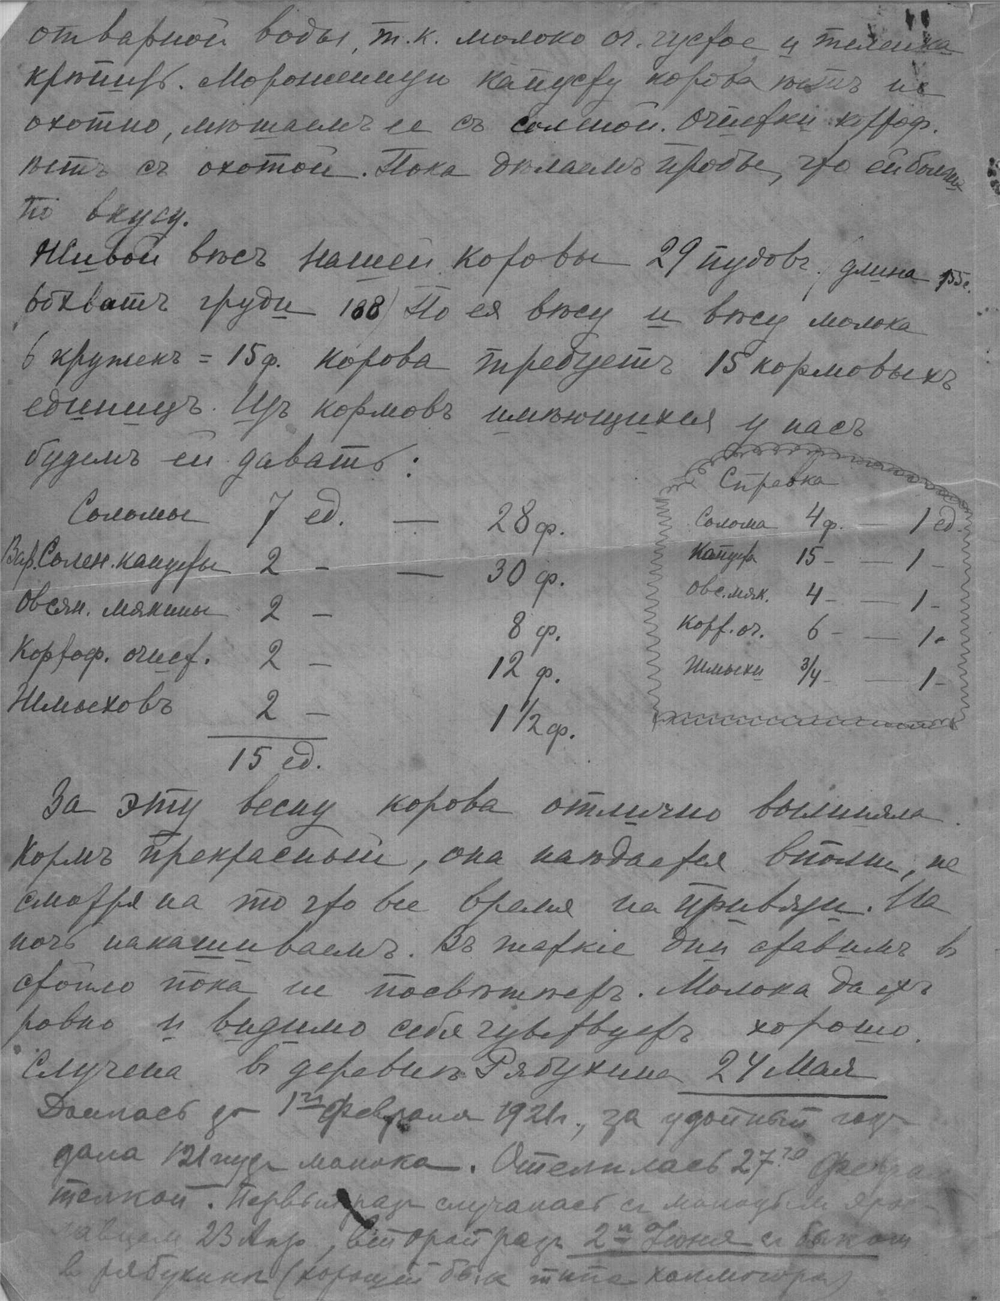 отварной воды, т.к. молоко оч. густое и теленка
крѣпитъ. Мороженную капусту корова ѣстъ не
охотно, мѣшаемъ ее съ соленой. Очистки картоф.
ѣстъ съ охотой. Пока дѣлаемъ пробы, что ей больше
по вкусу.
Живой вѣсъ нашей коровы 29 пудовъ, длина
обхватъ груди 188) По ея вѣсу и вѣсу молока
6 кружекъ = 15ф. корова требуетъ 15 кормовыхъ
единицъ. Изъ кормовъ имѣющихся у насъ
будемъ ей давать:
Соломы 7 ед. — 28ф.
Вар. Солен. капусты 2 - — 30 ф.
Овсян. мякины 2 - 8 ф.
Картоф. очист. 2 - 12 ф.
Жмыховъ 2 - 1 1/2 ф.
15 ед.
Справка
Солома 4ф. — 1 ед.
Капуста 15 - — 1 -
Овс. мяк. 4 - — 1 -
Карт. оч. 6 - — 1 -
Жмыхи 3/4 - — 1 -
За эту весну корова отлично вылиняла.
Кормъ прекрасный, она наѣдается вполнѣ, не
смотря на то что все время на привязи. На
ночь накашиваемъ. Въ жаркіе дни ставимъ в
стойло пока не посвѣжѣетъ. Молока даетъ
ровно и видимо себя чувствуетъ хорошо.
Случена в деревнѣ Рябухина 24 Мая
Доилась до 1го февраля 1921г., за удойный годъ
дала 121 пудъ молока. Отелилась 27го
телкой. Первый разъ случалась съ молодымъ яро-
славцемъ 23 Апр, второй разъ 2го Юня съ быкомъ
в рябухинѣ (хорошій быкъ типа холмогора)